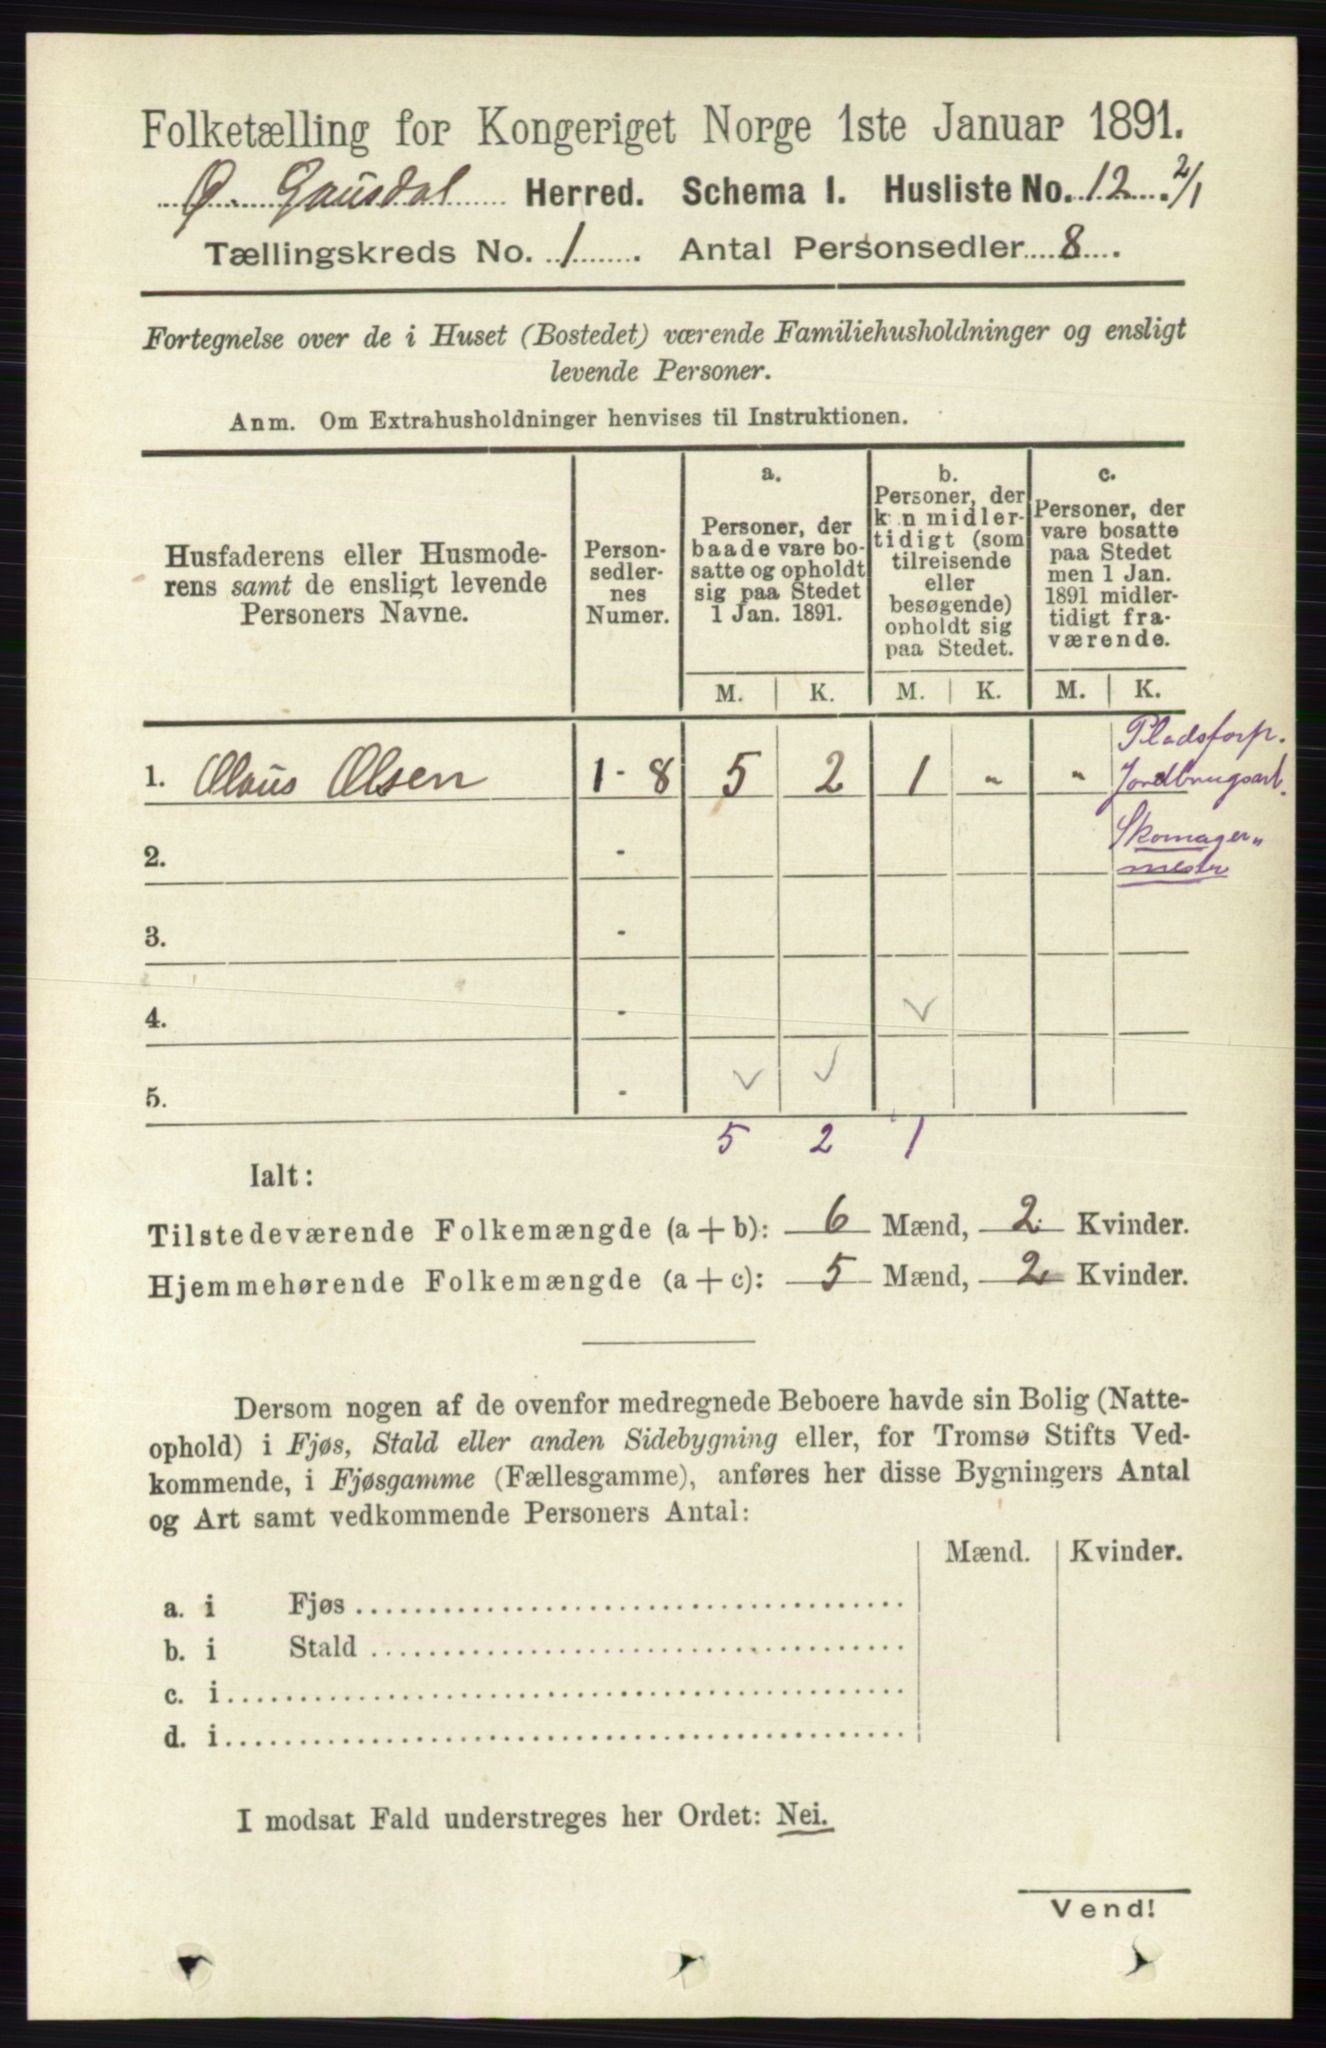 Folketælling for Kongeriget Norge 1ste Januar 1891.
Ø. Gausdal Herred. Schema I. Husliste No. 12 2/1
Tællingskreds No. 1. Antal Personsedler 8.
Fortegnelse over de i Huset (Bostedet) værende Familiehusholdninger og ensligt
levende Personer.
Anm. Om Extrahusholdninger henvises til Instruktionen.
Husfaderens eller Husmode-
rens samt de ensligt levende
Personers Navne.
Person-
sedler-
nes
Numer.
a.
Personer, der
baade vare bo-
satte og opholdt
sig paa Stedet
1 Jan. 1891.
b.
Personer, der
kun midler-
tidigt (som
tilreisende
eller
besøgende)
opholdt sig
paa Stedet.
c.
Personer, der
vare bosatte
paa Stedet
men 1 Jan.
1891 midler-
tidigt fra-
værende.
M. K. M. K. M. K.
Pladsforp.
Jordbrugsarb.
1. Olaus Olsen 1 - 8 5 2 1 " "
Skomager"
mester
2. -
3. -
4. -
5. -
5 2 1
Ialt:
Tilstedeværende Folkemængde (a + b): 6 Mænd, 2 Kvinder.
Hjemmehørende Folkemængde (a + c): 5 Mænd, 2 Kvinder.
Dersom nogen af de ovenfor medregnede Beboere havde sin Bolig (Natte-
ophold) i Fjøs, Stald eller anden Sidebygning eller, for Tromsø Stifts Ved-
kommende, i Fjøsgamme (Fællesgamme), anføres her disse Bygningers Antal
og Art samt vedkommende Personers Antal:
Mænd. Kvinder.
a. i Fjøs
b. i Stald
c. i
d. i
I modsat Fald understreges her Ordet: Nei.
Vend!